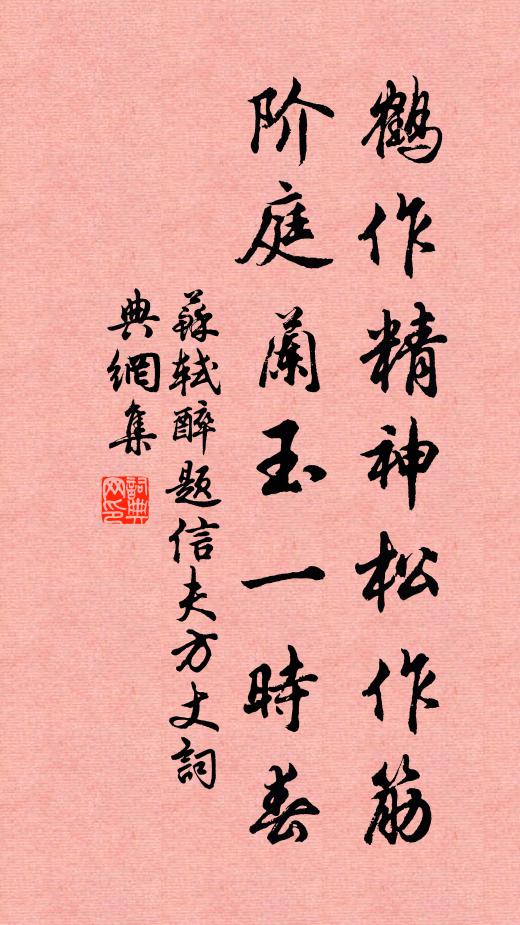 鹤作精神松作筋
阶庭蘭玉一時春
蘇軾醉題信夫方丈詞
典網集
詞典网印